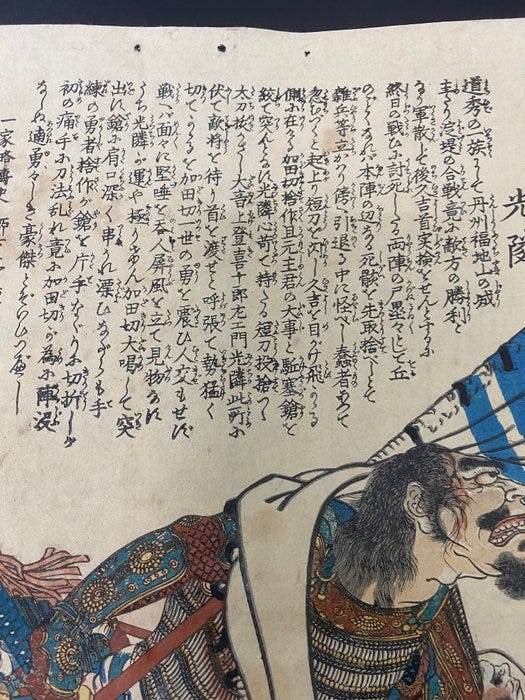 光隣
道秀の一族にて丹州福地山の城
主たり 淀堤の合戦竟に敵方の勝利と
なり軍散して後久吉首実捡をせんとするに
終日の戦ひに討死したる両陣の尸累々として丘
のごとくなれバ本陣の辺なる死骸を先取捨べしとて
雑兵等立かゝり傍へ引退る中に怪べし一個の蠢者あつて
忽むつくと起上り短刀を閃し久吉を目がけ飛かゝる
側に在ける加田切捨作且元主君の大事と駈塞鎗を
絞て突んとなすに光隣心苛て持たる短刀投捨つゝ
大刀抜かざし大音上登喜十郎左エ門光隣此所に
伏て敵将を待り首を渡せと呼張て勢猛く
切てかゝるを加田切一世の勇を震ひ一交もせず
戦へバ面々に堅唾を呑人屏風を立て見物なす
うち光隣が運や極りけん加田切大喝一声して突
出す鎗に肩口深く串かれ深ひながらも手
練の勇者捨作が鎗を片手なぐりに切折しが
初の痛手に刀法乱れ竟に加田切が為に陣没
なしぬ適勇々しき豪傑とぞいひつべし
一家略傳史